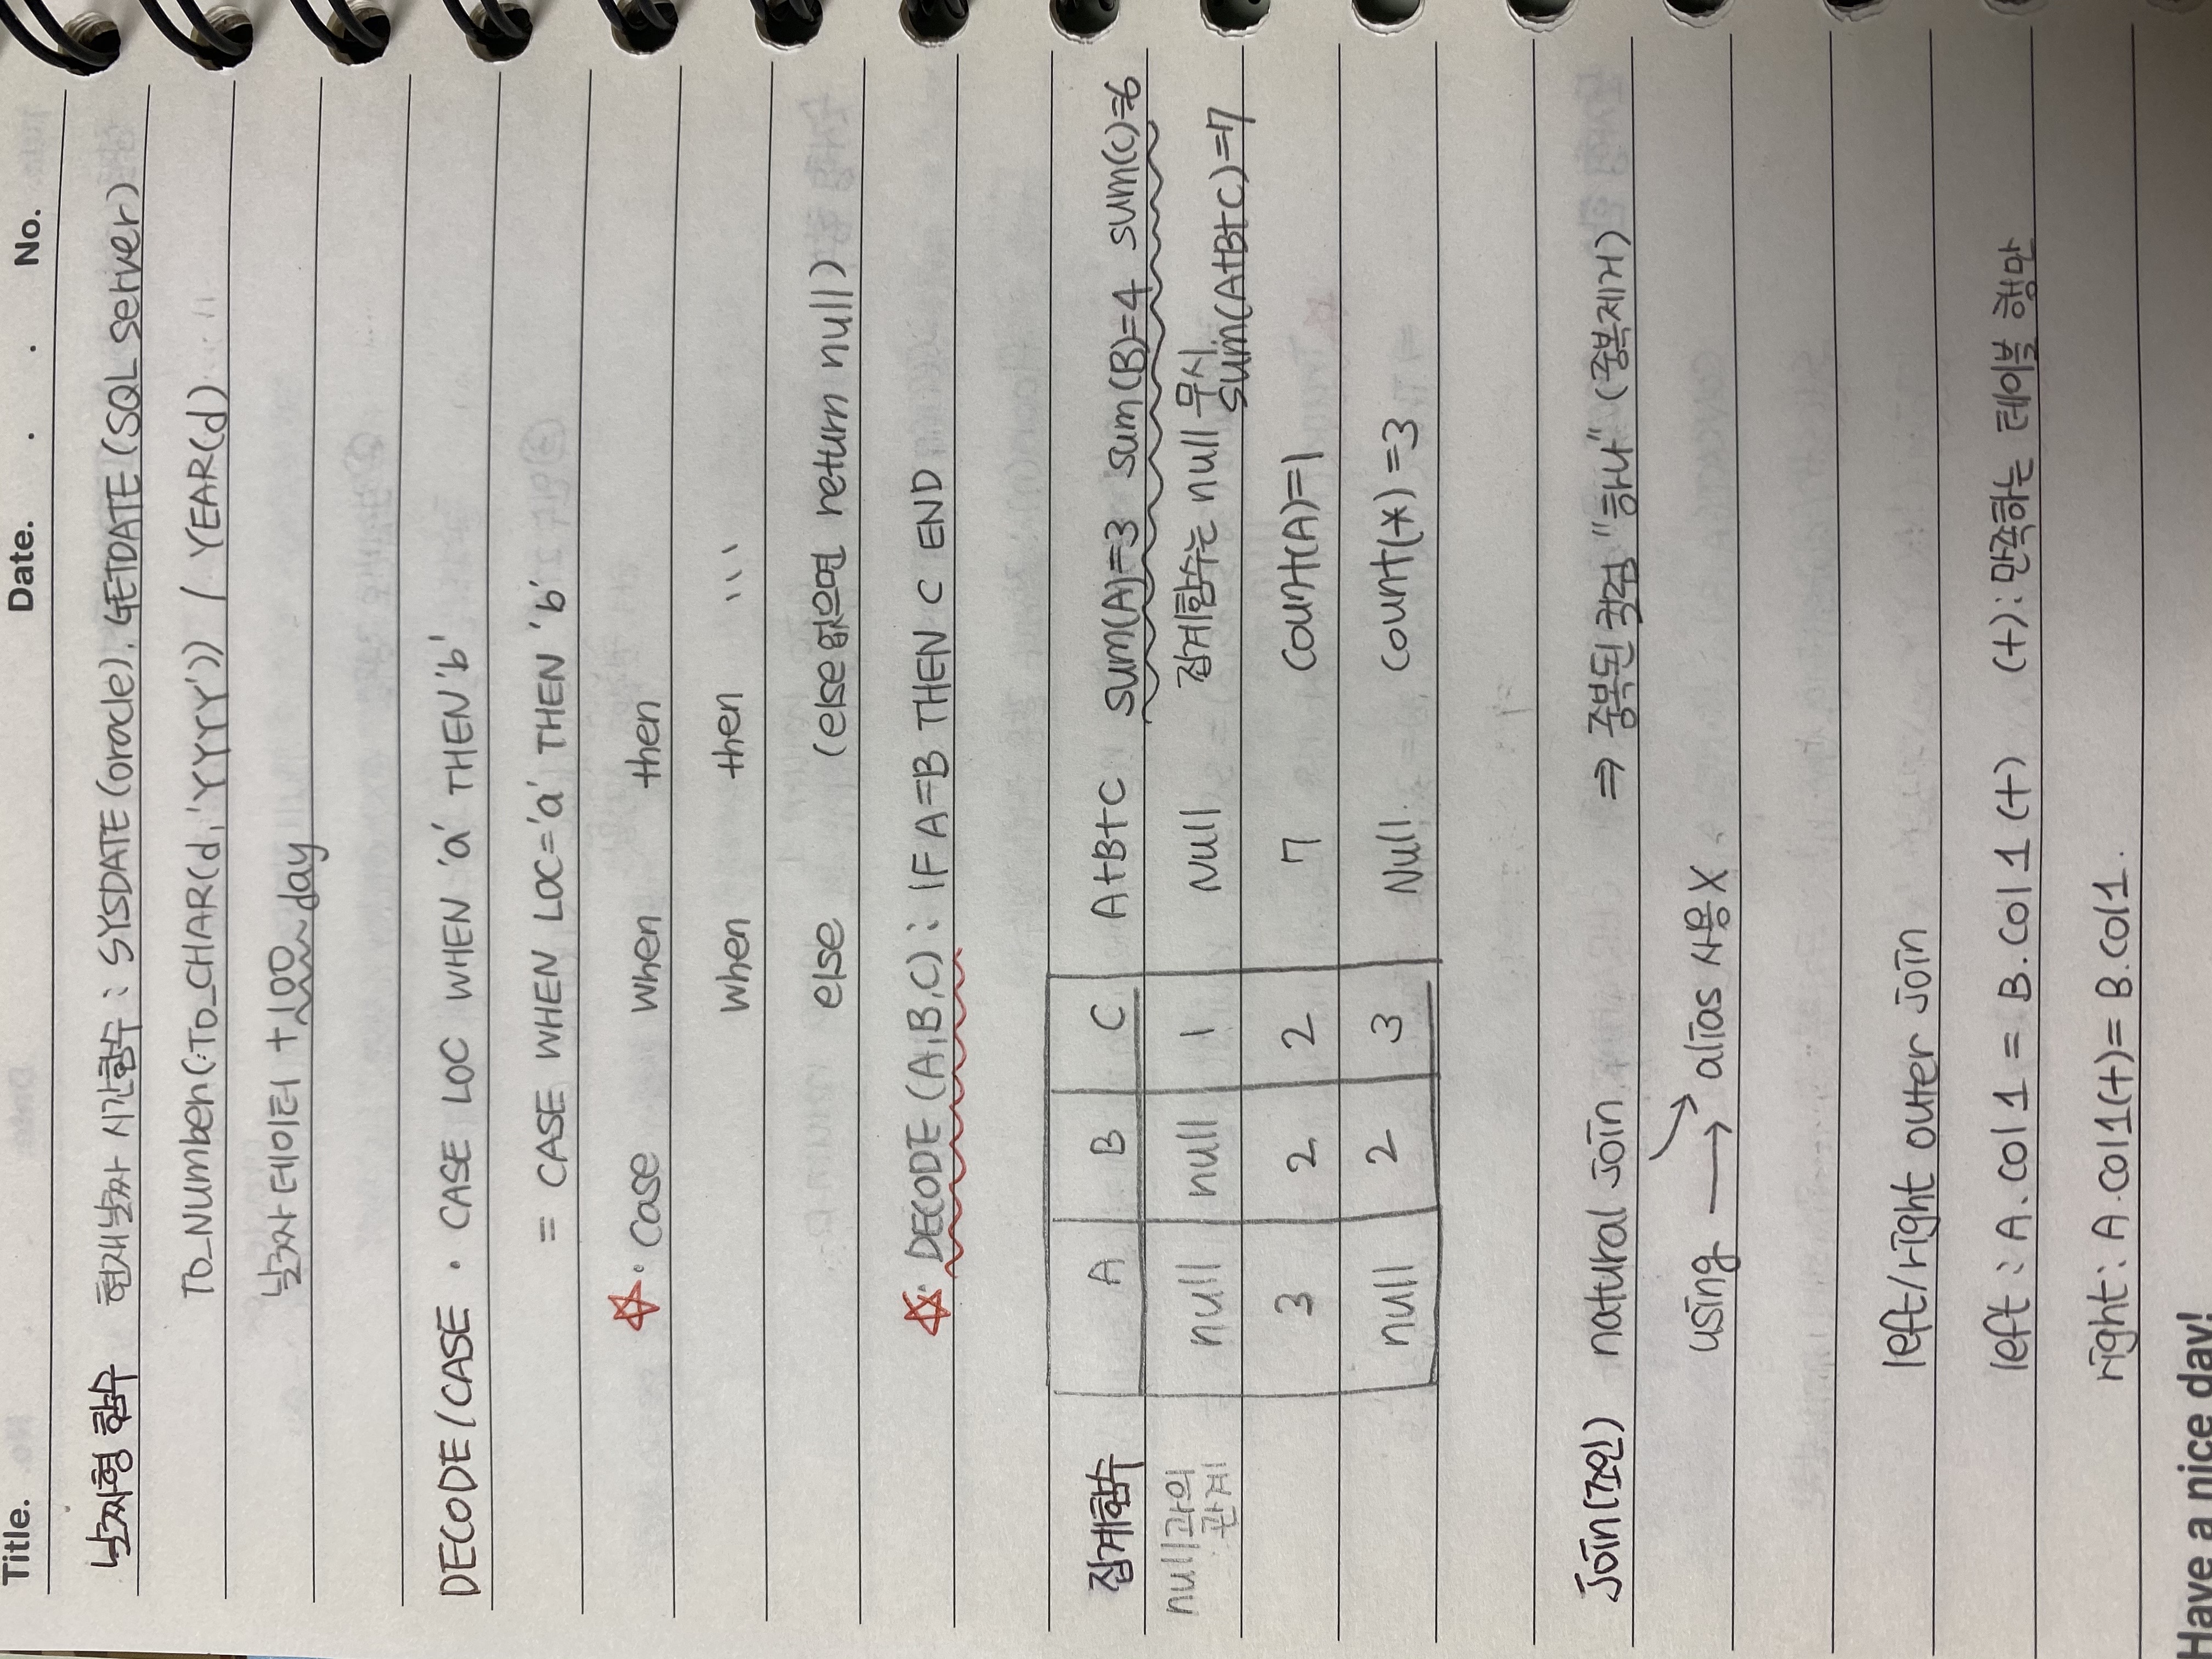 Title. Date. . . No.
날짜형 함수 현재날짜 시간함수 : SYSDATE (oracle). GETDATE (SQL server)
TO_Number(TO_CHAR(d, 'YYYY')) / YEAR(d)
날짜 데이터 +100 day
DECODE/CASE · CASE LOC WHEN 'a' THEN 'b'
= CASE WHEN LOC='a' THEN 'b'
☆· case when then
when then ...
else (else 없으면 return null)
☆· DECODE (A,B,C) : IF A=B THEN C END
집계함수 A B C A+B+C sum(A)=3 sum(B)=4 sum(C)=6
null과의 null null 1 Null 집계함수는 null 무시.
관계 sum(A+B+C)=7
3 2 2 7 count(A)=1
null 2 3 Null. count(*)=3
join(조인) natural join ⇒ 중복된 컬럼 "하나" (중복제거)
using → alias 사용X
left/right outer join
left : A.col1 = B.col1 (+) (+): 만족하는 테이블 행만
right: A.col1(+)= B.col1.
Have a nice day!